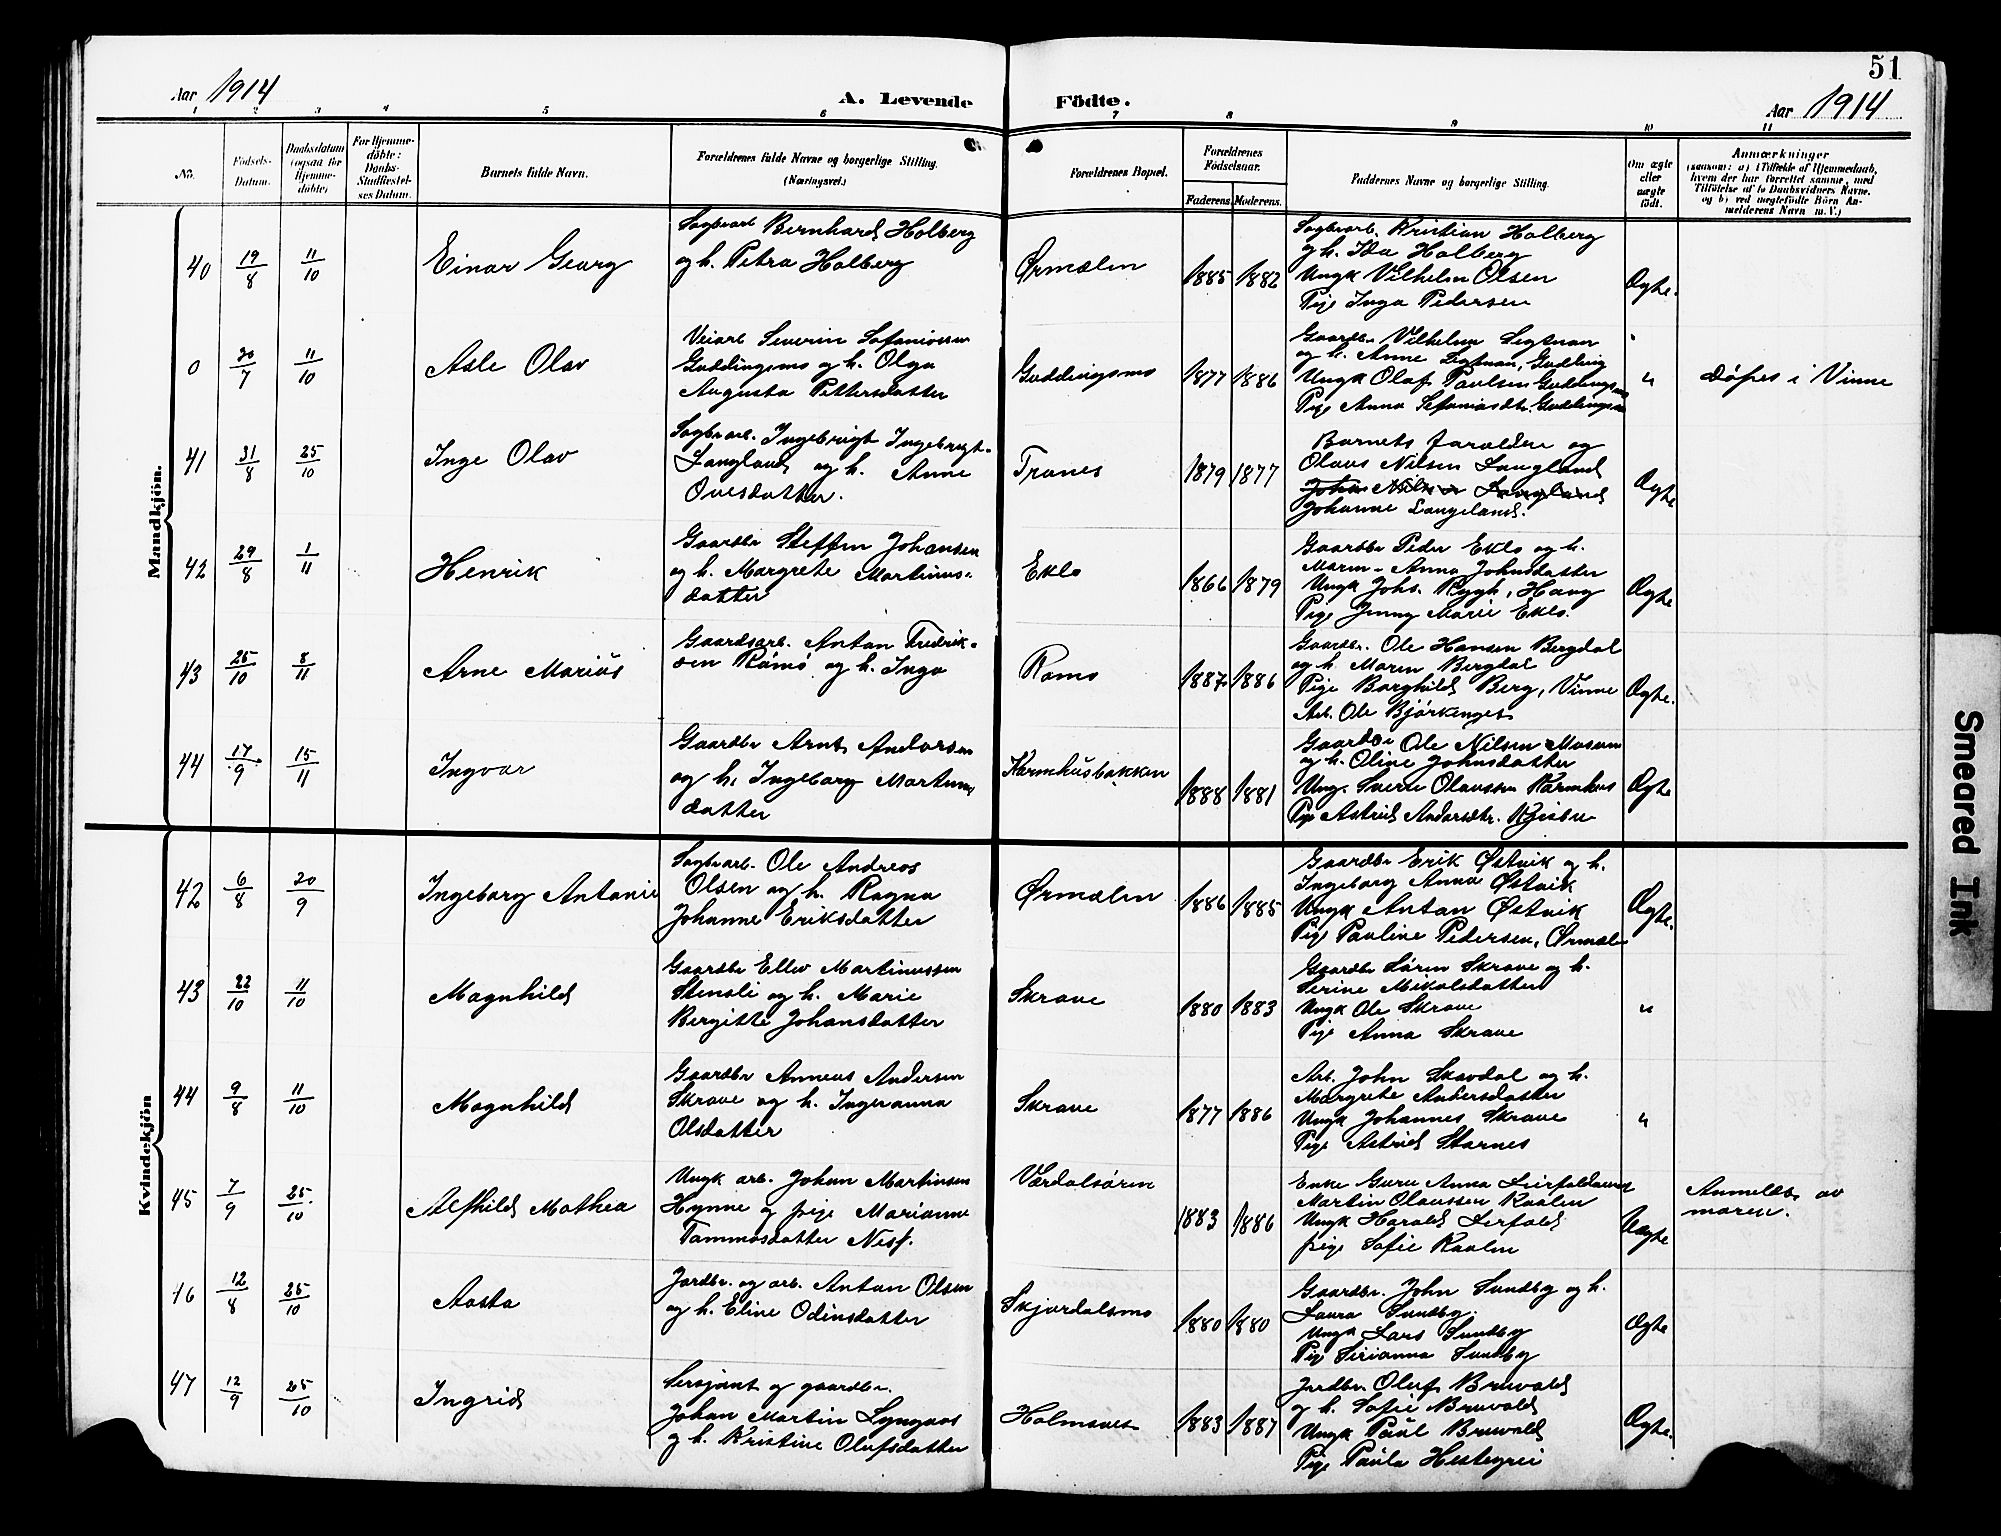 51
Aar 1914
A. Levende Födte.
Aar 1914
1 2 3 4 5 6 7 8 9 10 11
No.
Fødsels-
Datum.
Daabsdatum
(ogsaa for
Hjemme-
døbte)
For Hjemme-
döbte:
Daabs-
Stadfæstel-
ses Datum.
Barnets fulde Navn.
Forældrenes fulde Navne og borgerlige Stilling.
(Næringsvei.)
Forældrenes Bopæl.
Forældrenes
Födselsaar.
Faderens Moderens.
Faddernes Navne og borgerlige Stilling.
Om ægte
eller
uægte
født.
Anmærkninger
(saasom: a) i Tilfælde af Hjemmedaab,
hvem der har forrettet samme, med
Tilföielse af to Daabsvidners Navne,
og b) ved uægtefödte Börn An-
melderens Navn m. V.)
Mandkjön.
40 19/8 11/10
Einar Georg
Sagbrarb. Bernhard Holberg
og h. Petra Holberg
Ørmælen
1885 1882
Sagbrarb. Kristian Holberg
og h. Ida Holberg
Ungk Vilhelm Olsen
Pige Inga Pedersen
Ægte.
0 30/7 11/10
Asle Olav
Veiarb Severin Sefaniassen
Guddingsmo og h. Olga
Augusta Pettersdatter
Guddingsmo
1877 1886
Gaardbr Vilhelm Segtnan
og h. Anne Segtnan, Gudding
Ungk Olaf Paulsen Guddingsmo
Pige Anna Sefaniasdtr. Guddingsmo
"
døpes i Vinne
41 31/8 25/10
Inge Olav
Sagbrarb. Ingebrigt Ingebrigt-
Langland og h. Anne
Ovesdatter.
Tranes
1879 1877
Barnets forældre og
Olaus Nilsen Langland
Johan Nilsen Langland
Johanne Langeland.
Ægte
42 29/8 1/11
Henrik
Gaardbr Steffen Johansen
og h. Margrete Martinus-
datter
Eklo
1866 1879
Gaardbr Peder Eklo og h.
Maren-Anna Johnsdatter
Ungk Johs. Rygh, Haug
Pige Jenny Marie Eklo.
Ægte
43 25/10 8/11
Arne Marius
Gaardsarb. Anton Fredrik-
sen Ramo og h. Inga
Ramo
1887 1886
Gaardbr. Ole Hansen Bergdal
og h. Maren Bergdal
Pige Borghild Berg, Vinne
Arb. Ole Bjørkenget
Ægte.
44 17/9 15/11
Ingvar
Gaardbr Arnt Andersen
og h. Ingeborg Martinus
datter
Karmhusbakken
1888 1881
Gaardbr Ole Nilsen Mosum
og h. Oline Johnsdatter
Ung. Sverre Olaussen Karmhus
Pige Astrid Andersdtr. Kjesbu
Ægte
Kvindekjön
42 6/8 20/9
Ingeborg Antonie
Sagbrarb. Ole Andreas
Olsen og h. Ragna
Johanne Eriksdatter
Ørmælen
1886 1885
Gaardbr Erik Østvik og h.
Ingeborg Anna Østvik
Ungk Anton Østvik
Pige Pauline Pedersen, Ørmæle
Ægte.
43 22/10 11/10
Magnhild
Gaardbr Ellev Martinussen
Stensli og h. Marie
Bergitte Johansdatter
Skrave
1880 1883
Gaardbr Søren Skrave og h.
Serine Mikalsdatter
Ungk Ole Skrave
Pige Anna Skrave
"
44 9/8 11/10
Magnhild
Gaardbr Anneus Andersen
Skrave og h. Ingeranna
Olsdatter
Skrave
1877 1886
Arb. John Skavdal og h.
Margrete Andersdatter
Ungk Johannes Skrave
Pige Astrid Stornes
"
45 7/9 25/10
Alfhild Mathea
Ungk arb. Johan Martinsen
Hynne og pige Marianne
Tommasdatter Nesf.
Værdalsøren
1883 1886
Enke Guru Anna Leirfaldaunet
Martin Olaussen Kvalen
Ungk Harald Lerfald
pige Sofie Kvalen
Uægte
Anmeldt av
moren.
46 12/8 25/10
Aasta
Jordbr. og arb. Anton Olsen
og h. Eline Odinsdatter
Skjørdalsmo
1880 1880
Gaardbr. John Sundby og h.
Laura Sundby.
Ungk Lars Sundby
Pige Sirianna Sundby
Ægte
47 12/9 25/10
Ingrid
Sersjant og gaardbr.
Johan Martin Lyngaas
og h. Kristine Olufsdatter
Holmsvet
1883 1887
Jordbr. Oluf Bruvold
og h. Sofie Bruvold
Ungk Paul Bruvold
Pige Paula Hestegrei
Ægte.
Smeared Ink